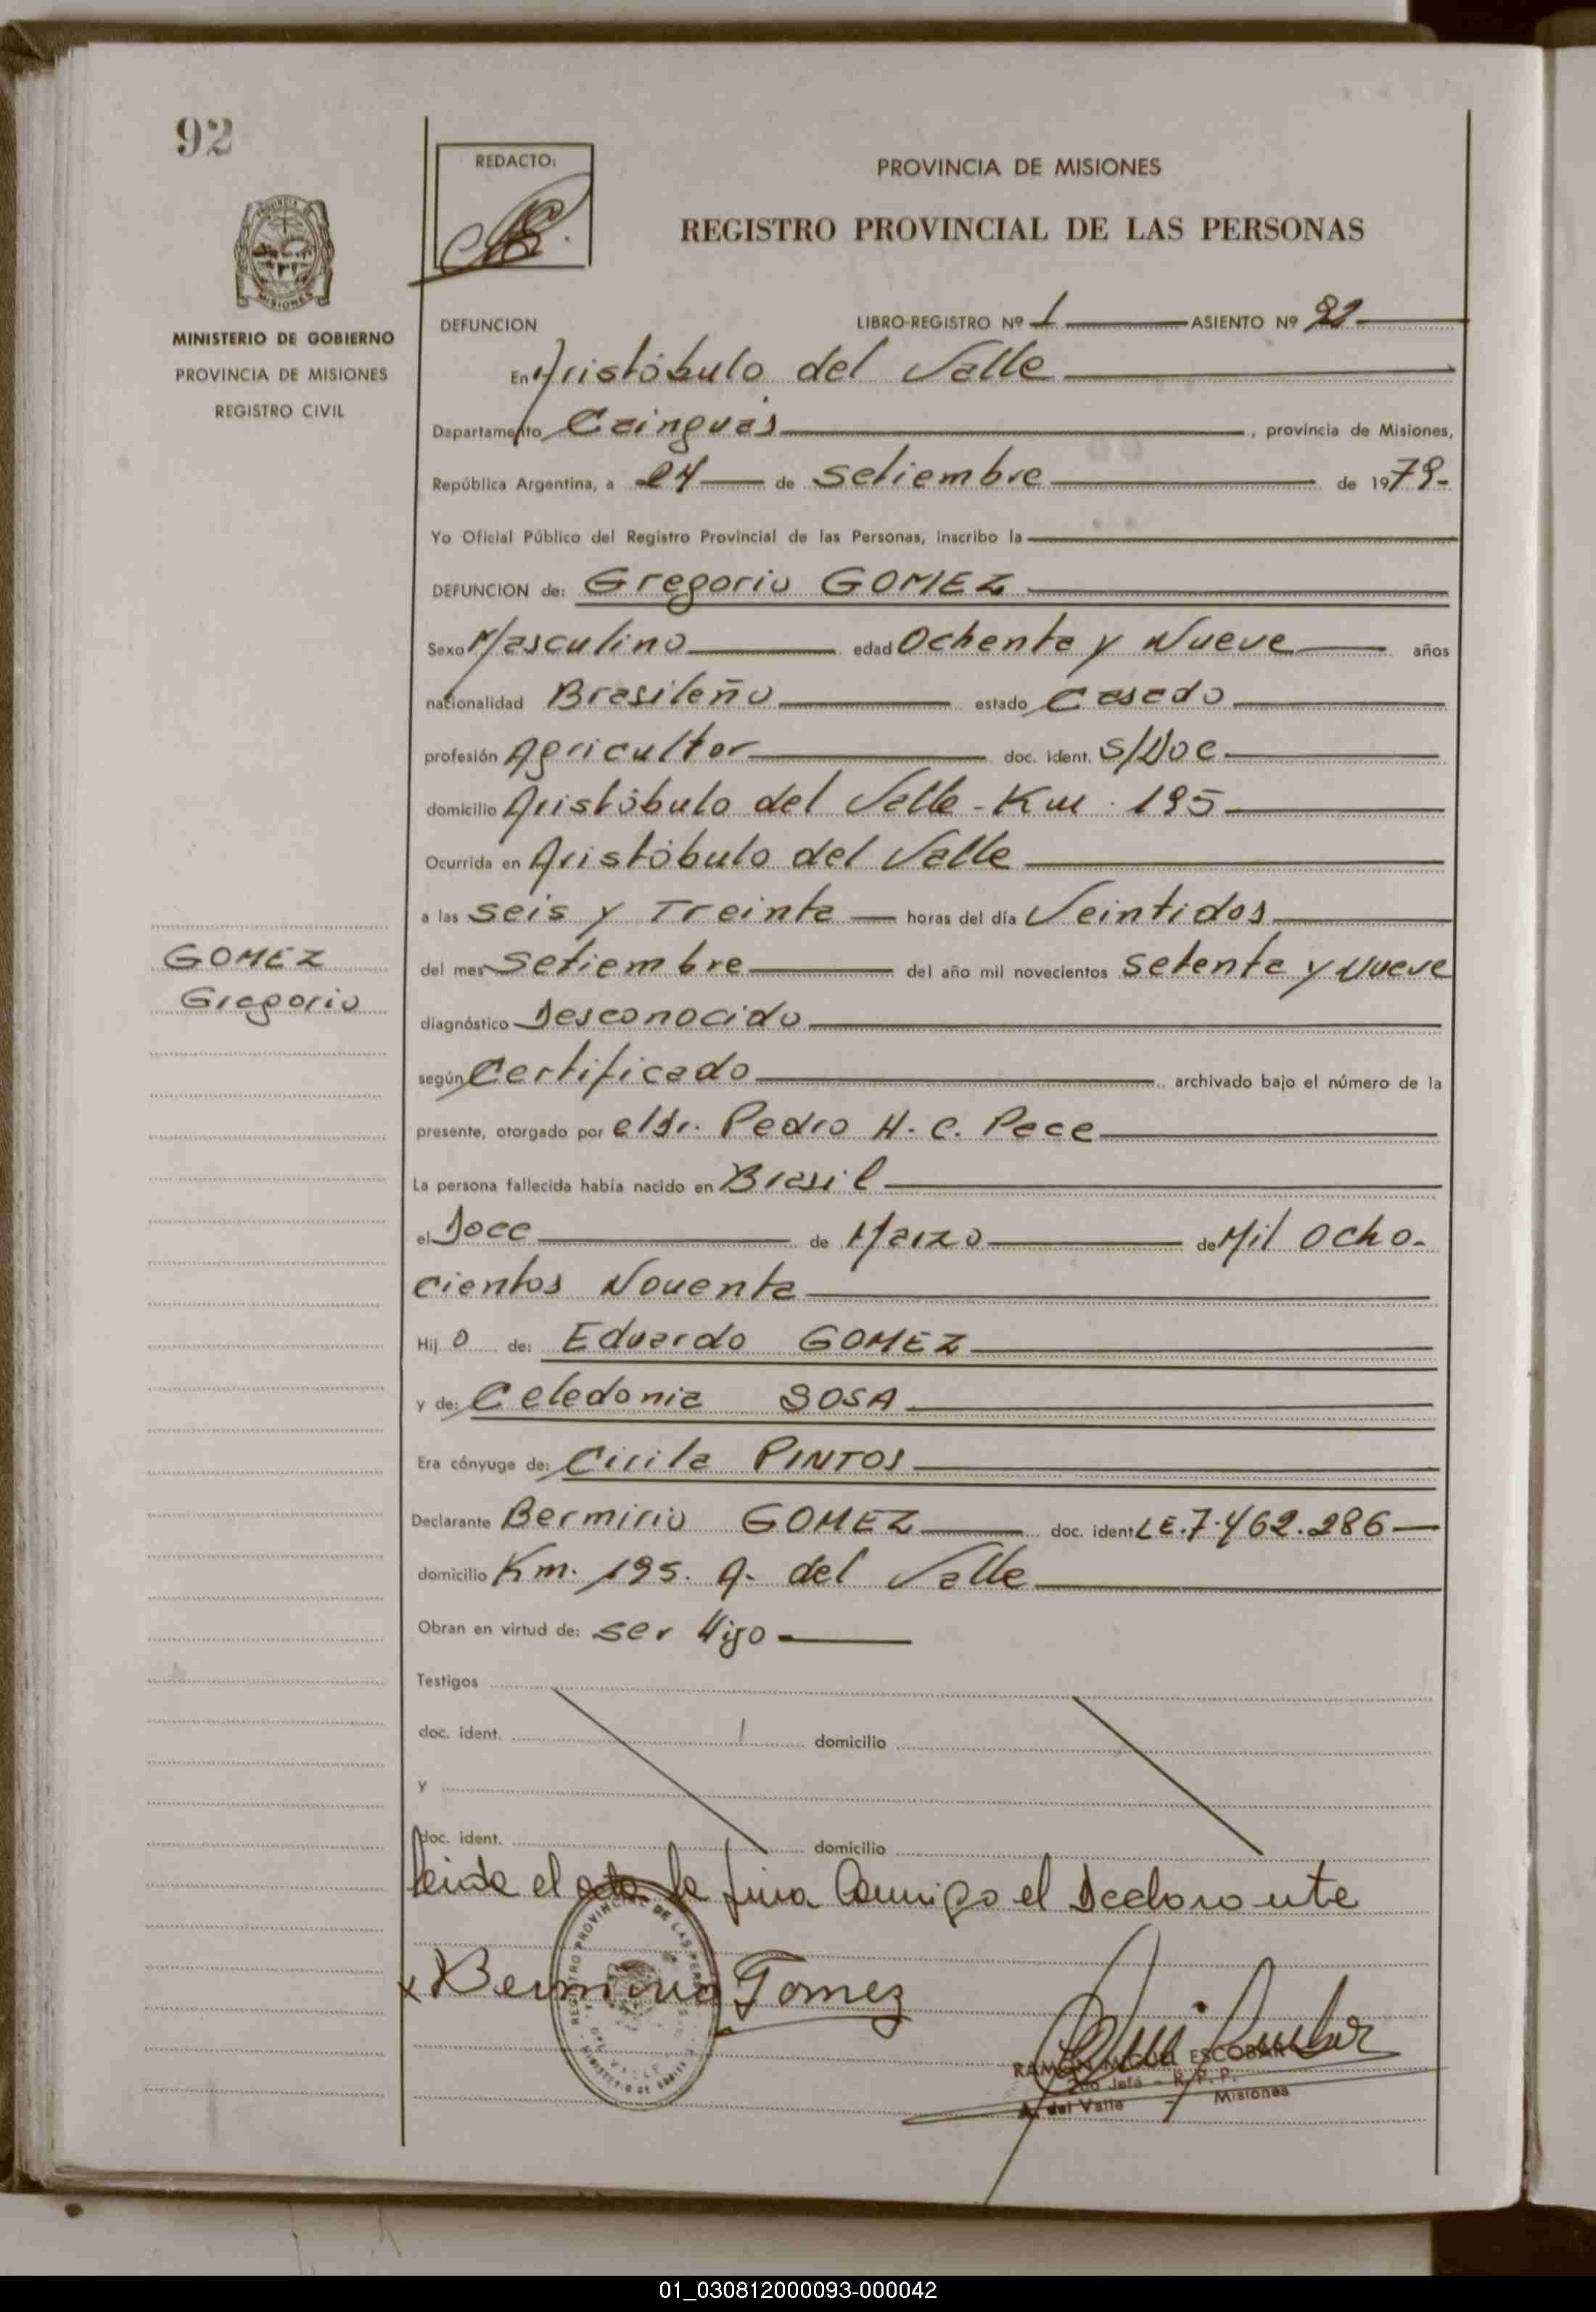 92
REDACTO:
PROVINCIA DE MISIONES
REGISTRO PROVINCIAL DE LAS PERSONAS
MINISTERIO DE GOBIERNO
PROVINCIA DE MISIONES
REGISTRO CIVIL
DEFUNCION LIBRO-REGISTRO Nº 1 ASIENTO Nº 92
En Aristóbulo del Valle
Departamento Cainguás, provincia de Misiones,
República Argentina, a 24 de Setiembre de 1979-
Yo Oficial Público del Registro Provincial de las Personas, inscribo la
DEFUNCION de: Gregorio GOMEZ
Sexo Masculino edad Ochenta y Nueve años
nacionalidad Brasileño estado Casado
profesión Agricultor doc. ident. S/Doc
domicilio Aristóbulo del Valle - Km. 195
Ocurrida en Aristóbulo del Valle
a las seis y Treinta horas del día Veintidos
del mes Setiembre del año mil novecientos Setenta y Nueve
GOMEZ
Gregorio
diagnóstico Desconocido
según Certificado archivado bajo el número de la
presente, otorgado por el Dr. Pedro H. C. Pace
La persona fallecida había nacido en Brasil
el Doce de Marzo de Mil Ocho-
cientos Noventa
Hij o de: Eduardo GOMEZ
y de: Celedonia SOSA
Era cónyuge de: Cirila PINTOS
Declarante Bermirio GOMEZ doc. ident L E. 7.462.286
domicilio Km. 195. A. del Valle
Obran en virtud de: ser Hijo
Testigos
doc. ident. domicilio
y
doc. ident. domicilio
leida el acta la firma Conmigo el Declarante
x Bermirio Gomez
RAMON MIGUEL ESCOBAR
2do Jefe - R. P. P.
A. del Valle - Misiones
01_030812000093-000042